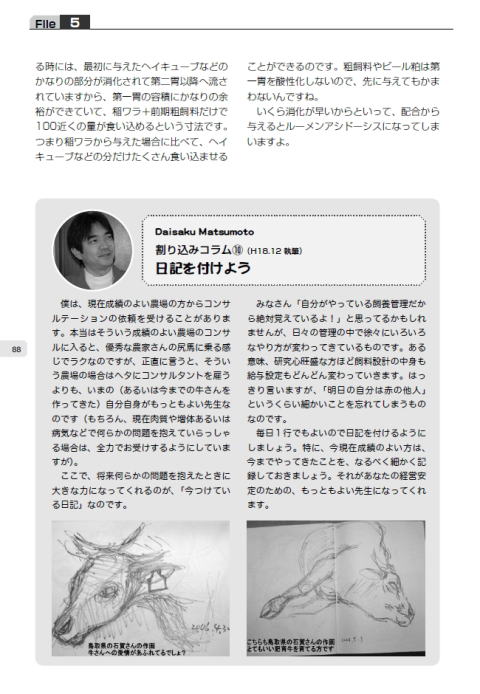 File 5
る時には、最初に与えたヘイキューブなどの
かなりの部分が消化されて第二胃以降へ流さ
れていますから、第一胃の容積にかなりの余
裕ができていて、稲ワラ＋前期粗飼料だけで
100近くの量が食い込めるという寸法です。
つまり稲ワラから与えた場合に比べて、ヘイ
キューブなどの分だけたくさん食い込ませる
ことができるのです。粗飼料やビール粕は第
一胃を酸性化しないので、先に与えてもかま
わないんですね。
いくら消化が早いからといって、配合から
与えるとルーメンアシドーシスになってしま
いますよ。
Daisaku Matsumoto
割り込みコラム⑩（H18.12 執筆）
日記を付けよう
僕は、現在成績のよい農場の方からコンサ
ルテーションの依頼を受けることがありま
す。本当はそういう成績のよい農場のコンサ
ルに入ると、優秀な農家さんの尻馬に乗る感
じでラクなのですが、正直に言うと、そうい
う農場の場合はヘタにコンサルタントを雇う
よりも、いまの（あるいは今までの牛さんを
作ってきた）自分自身がもっともよい先生な
のです（もちろん、現在肉質や増体あるいは
病気などで何らかの問題を抱えていらっしゃ
る場合は、全力でお受けするようにしていま
すが）。
ここで、将来何らかの問題を抱えたときに
大きな力になってくれるのが、「今つけてい
る日記」なのです。
みなさん「自分がやっている飼養管理だか
ら絶対覚えているよ！」と思ってるかもしれ
ませんが、日々の管理の中で徐々にいろいろ
なやり方が変わってきているものです。ある
意味、研究心旺盛な方ほど飼料設計の中身も
給与設定もどんどん変わっていきます。はっ
きり言いますが、「明日の自分は赤の他人」
というくらい細かいことを忘れてしまうもの
なのです。
毎日1行でもよいので日記を付けるように
しましょう。特に、今現在成績のよい方は、
今までやってきたことを、なるべく細かく記
録しておきましょう。それがあなたの経営安
定のための、もっともよい先生になってくれ
ます。
88
鳥取県の石賀さんの作画
牛さんへの愛情があふれてるでしょ？
こちらも鳥取県の石賀さんの作画
とてもいい肥育牛を育てる方です